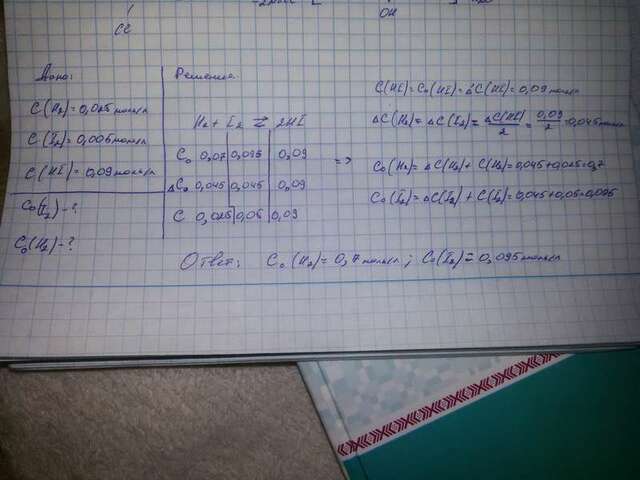 Cl
OH
Дано:
C(H₂)=0,025 моль/л
C(I₂)=0,005 моль/л
C(HI)=0,09 моль/л
C₀(I₂)-?
C₀(H₂)-?
Решение
H₂ + I₂ ⇄ 2HI
C₀ 0,07 0,095 0,09
ΔC₀ 0,045 0,045 0,09
C 0,025 0,05 0,09
=>
C(HI)=C₀(HI)=ΔC(HI)=0,09 моль/л
ΔC(H₂)=ΔC(I₂)=ΔC(HI)/2=0,09/2=0,045 моль/л
C₀(H₂)=ΔC(H₂)+C(H₂)=0,045+0,025=0,7
C₀(I₂)=ΔC(I₂)+C(I₂)=0,045+0,05=0,095
Ответ: C₀(H₂)=0,7 моль/л; C₀(I₂)=0,095 моль/л